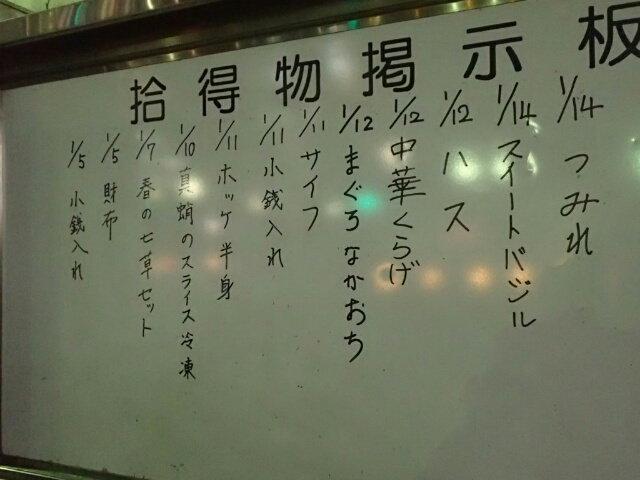 拾得物掲示板
1/14 つみれ
1/14 スイートバジル
1/12 ハス
1/12 中華くらげ
1/12 まぐろなかおち
1/11 サイフ
1/11 小銭入れ
1/11 ホッケ半身
1/10 真蛸のスライス冷凍
1/7 春の七草セット
1/5 財布
1/5 小銭入れ